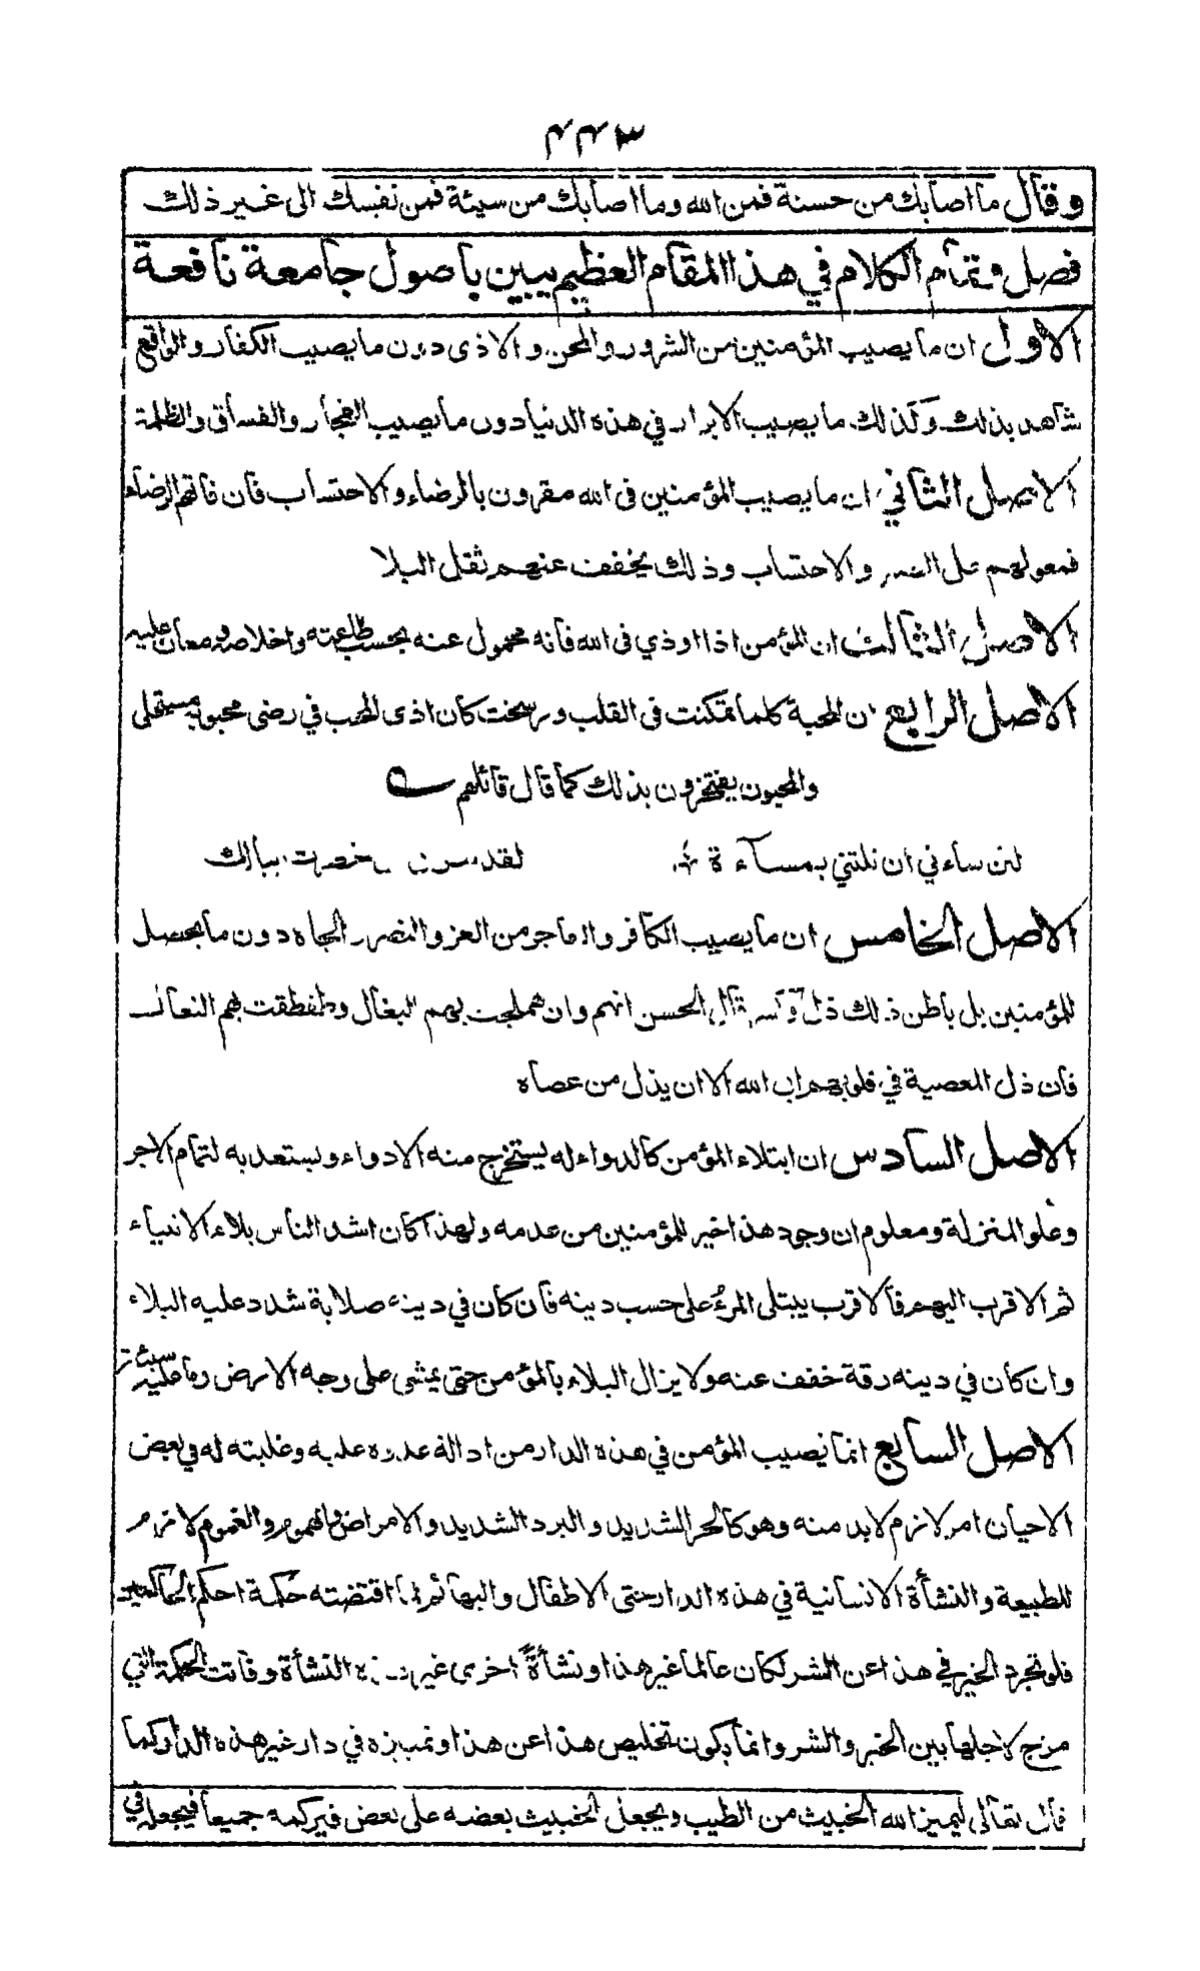 ٤٤٣
وقال ما اصابك من حسنة فمن الله وما اصابك من سيئة فمن نفسك الى غير ذلك
فصل وتمام الكلام في هذا المقام العظيم يبين باصول جامعة نافعة
الاول ان ما يصيب المؤمنين من الشرور والمحن والاذى دون ما يصيب الكفار والواقع
شاهد بذلك وكذلك ما يصيب الابرار في هذه الدنيا دون ما يصيب الفجار والفساق والظلمة
الاصل الثاني ان ما يصيب المؤمنين فى الله مقرون بالرضاء والاحتساب فان فاتهم الرضاء
فمعولهم على الصبر والاحتساب وذلك يخفف عنهم ثقل البلا
الاصل الثالث ان المؤمن اذا اوذي فى الله فانه محمول عنه بحسب طاعته واخلاصه ومعان عليه
الاصل الرابع ان المحبة كلما تمكنت فى القلب ورسخت كان اذى المحب في رضى محبوبه مستحلى
والمحبون يفتخرون بذلك كما قال قائلهم
لئن ساءني ان نلتني بمساءة لقد سرني خطرت ببالك
الاصل الخامس ان ما يصيب الكافر والفاجر من العز والنصر الجاه دون ما يحصل
للمؤمنين بل باطن ذلك ذل وكسر قال الحسن انهم وان هملجت بهم البغال وطقطقت بهم النعال
فان ذل المعصية في قلوبهم ابى الله الا ان يذل من عصاه
الاصل السادس ان ابتلاء المؤمن كالدواء له يستخرج منه الادواء ويستعد به لتمام الاجر
وعلو المنزلة ومعلوم ان وجود هذا خير للمؤمنين من عدمه ولهذا كان اشد الناس بلاء الانبياء
ثم الاقرب اليهم فالاقرب يبتلى المرء على حسب دينه فان كان في دينه صلابة شدد عليه البلاء
وان كان في دينه رقة خفف عنه ولا يزال البلاء بالمؤمن حتى يمشى على وجه الارض وما عليه سيئة
الاصل السابع انما يصيب المؤمن في هذه الدار من ادالة عدوه عليه وغلبته له في بعض
الاحيان امر لازم لا بد منه وهو كالحر الشديد والبرد الشديد والامراض والهموم والغموم لازم
للطبيعة والنشأة الانسانية في هذه الدار حتى الاطفال والبهائم لما اقتضته حكمة احكم الحاكمين
فلو تجرد الخير في هذا عن الشر لكان عالما غير هذا ونشأة اخرى غير هذه النشأة وفاتت الحكمة التي
مزج لاجلها بين الخير والشر وانما يكون تخليص هذا عن هذا وتمييزه في دار غير هذه الدار كما
قال تعالى ليميز الله الخبيث من الطيب ويجعل الخبيث بعضه على بعض فيركمه جميعا فيجعله في